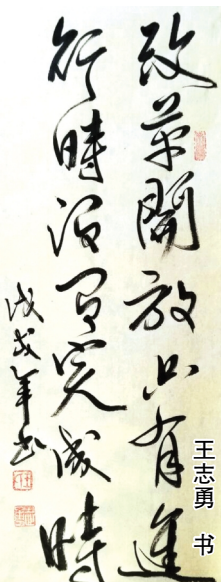 改革開放只有進
行時没有完成時
戊戌年書
王志勇 书